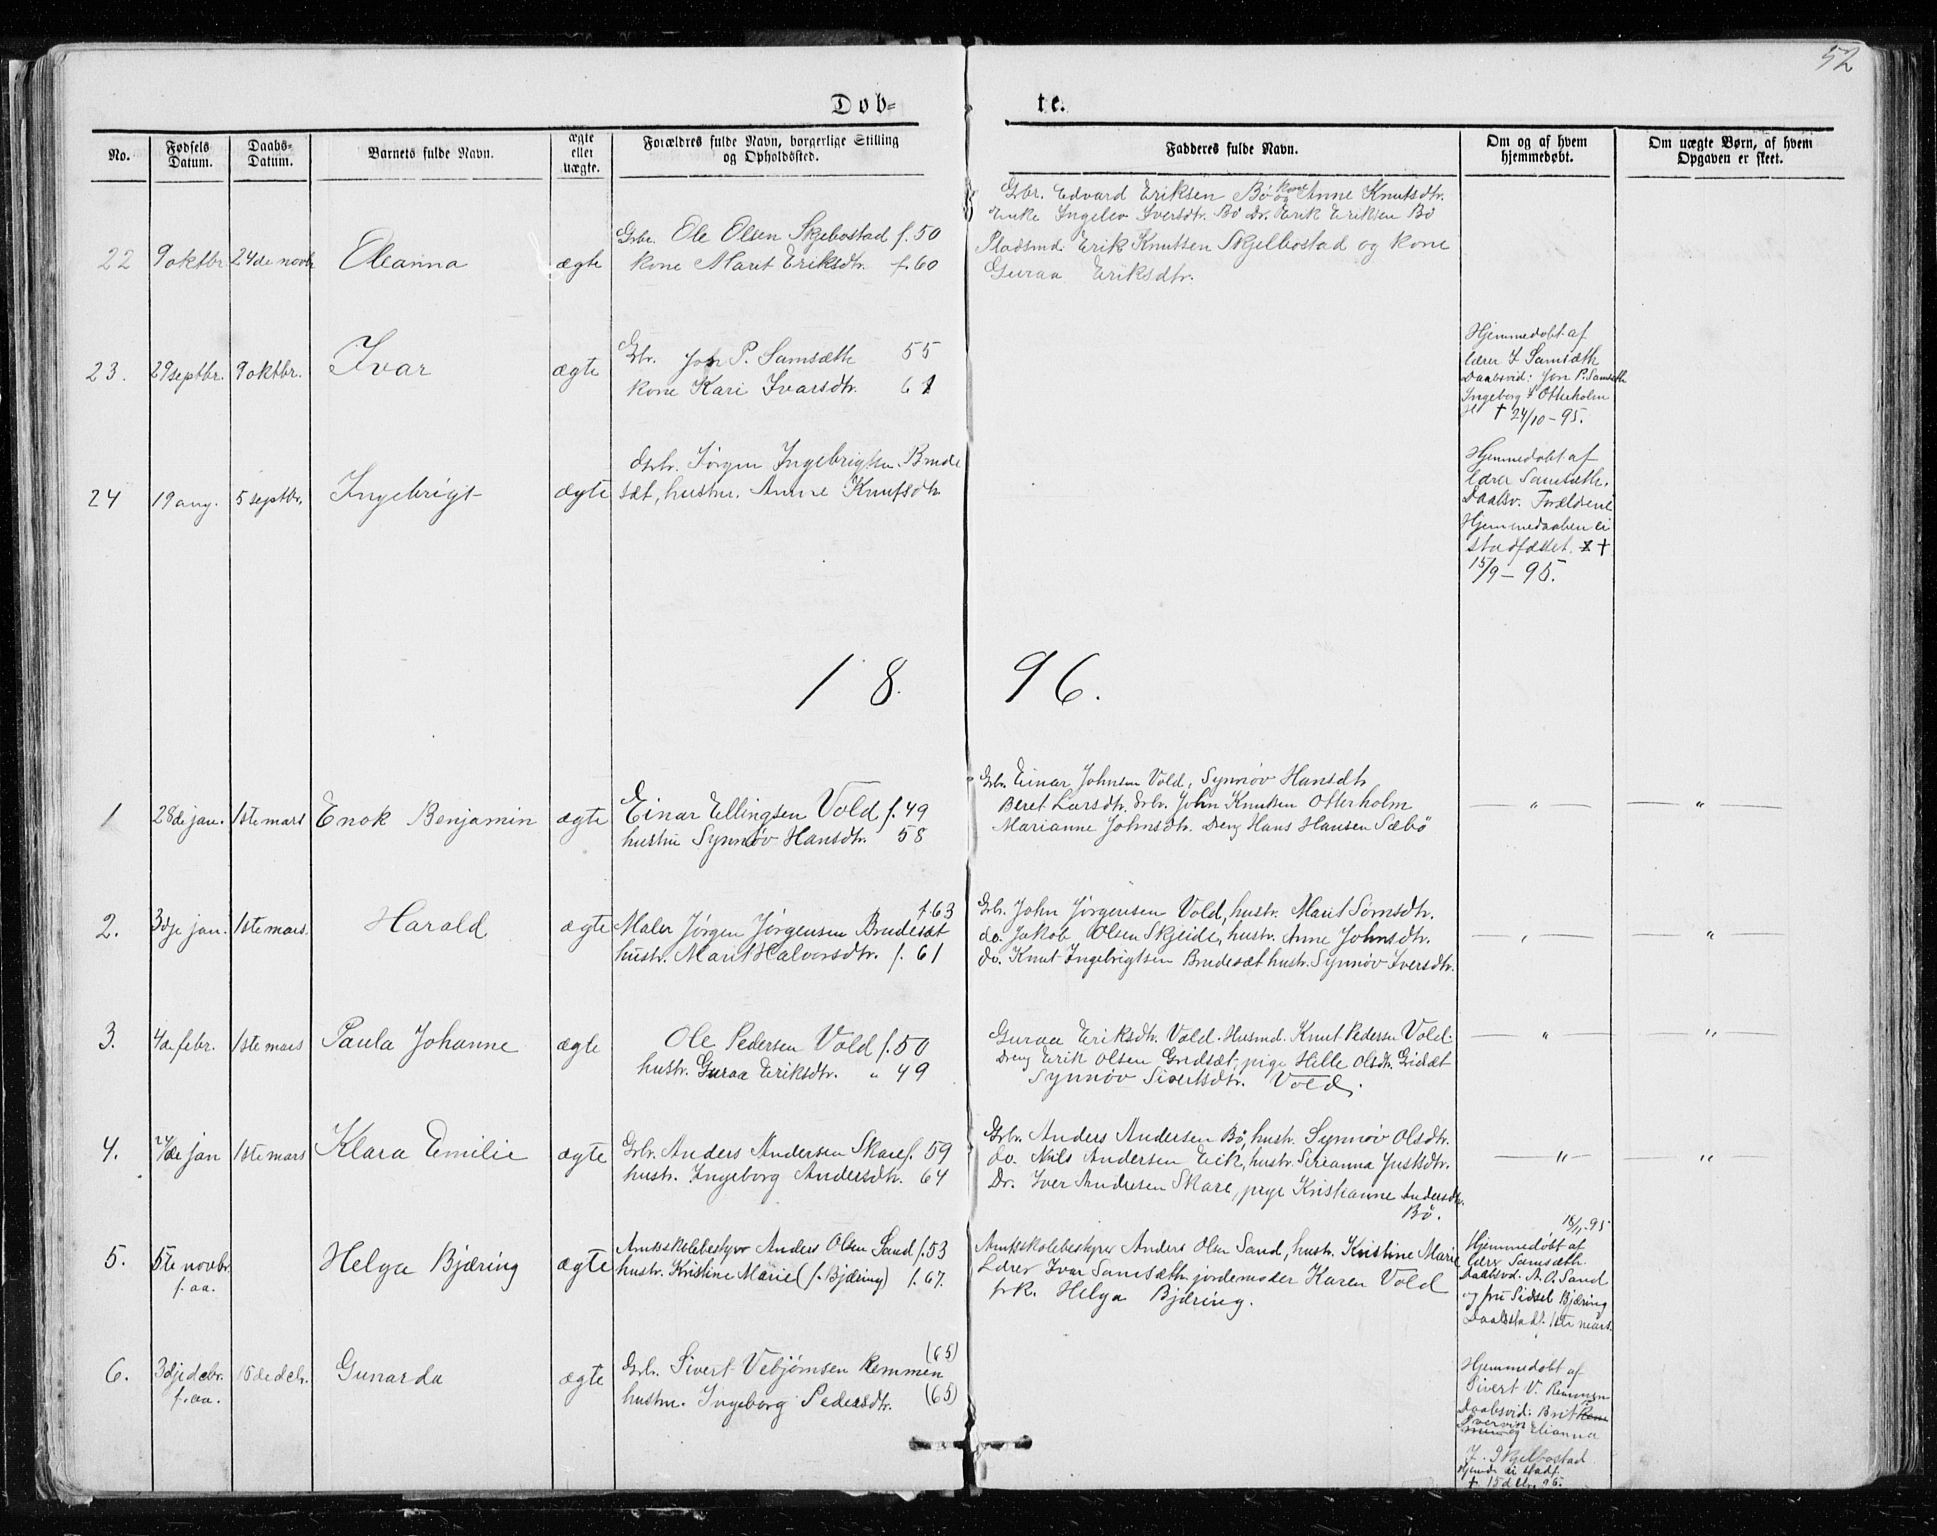 52
Døb- te.
No.
Fødsels Datum.
Daabs- Datum.
Barnets fulde Navn.
ægte eller uægte.
Forældres fulde Navn, borgerlige Stilling og Opholdssted.
Fadderes fulde Navn.
Om og af hvem hjemmedøbt.
Om uægte Børn, af hvem Opgaven er skeet.
22 9 oktbr 24de novb Oleanna ægte
Gbr. Ole Olsen Skjebostad f. 50
kone Marit Eriksdtr. f. 60
Gbr. Edvard Eriksen Bø og kone Anne Knutsdtr.
Enke Ingelev Iversdtr. Bø Dr. Erik Eriksen Bø
Pladsmd. Erik Knutsen Skjelbostad og kone
Guraa Eriksdtr.
23. 29 septbr. 9 oktbr. Ivar ægte
Gbr. Jon P. Samsæth 55
kone Kari Ivarsdtr. 61
Hjemmedøbt af
lærer I Samsæth
Daabsvid: Jon P. Samsæth
Ingeborg Otterholm
† 24/10-95.
24 19 aug. 5 septbr. Ingebrigt ægte
Gbr. Jørgen Ingebrigtsen Brude
sæt, hustru. Anne Knutsdtr.
Hjemmedøbt af
lærer Samsæth.
Daabsv. Forældrene
Hjemmedaaben ei
stadfæstet. †
15/9-95.
18 96.
1 28de jan. 1ste mars Enok Benjamin ægte
Einar Ellingsen Vold f. 49
hustru Synnøv Hansdtr. 58
Gbr. Einar Johnsen Vold, Synnøv Hansdtr
Beret Larsdtr. Gbr. John Knutsen Otterholm
Marianne Johnsdtr. Dreng Hans Hansen Sæbø
— " — — " —
2. 3dje jan. 1ste mars. Harald ægte
f. 63
Maler Jørgen Jørgensen Brudesæt
hustr. Marit Halvorsdtr. f. 61
Gbr. John Jørgensen Vold, hustr. Marit Sørnsdtr.
do. Jakob Olsen Skjeide, hustr. Anne Johnsdtr.
do. Knut Ingebrigtsen Brudesæt hustr. Synnøv Iversdtr.
— " — — " —
3. 4de febr. 1ste mars Paula Johanne ægte
Ole Pedersen Vold f. 50
hustr. Guraa Eriksdtr. " 49
Guraa Eriksdtr. Vold. Husmd. Knut Pedersen Vold
Dreng Erik Olsen Gridsæt, pige Hille Olsdtr. Gridsæt
Synnøv Sivertsdtr. Vold.
— " — — " —
4. 24de jan 1ste mars Klara Emilie ægte
Gbr. Anders Andersen Skare f. 59
hustr. Ingeborg Andersdtr. 64
Gbr. Anders Andersen Bø, hustr. Synnøv Olsdtr.
do. Nils Andersen Eik, hustr. Serianna Justsdtr.
Dr. Iver Andresen Skare, pige Kristianne Andersdtr.
Bø.
— " — — " —
5. 5te novbr. f. aa. Helga Bjæring ægte
Amtsskolebestyrer Anders Olsen Sand f. 53
hustr. Kristine Marie (f. Bjæring) f. 67.
Amtsskolebestyrer Anders Olsen Sand, hustr. Kristine Marie
Lærer Ivar Samsæth, jordemoder Karen Vold
frk. Helga Bjæring.
18/11-95
Hjemmedøbt af
lærer Samsæth.
Daabsvd. A. O. Sand
og fru Sidsel Bjæring
Daabstadf. 1ste mars.
6. 3dje decbr. f. aa. 15de decbr. Gunarda ægte
Gbr. Sivert Vebjørnsen Remmen (65)
hustru. Ingeborg Pedersdtr. (65)
Hjemmedøbt af
Sivert V. Remmen
Daabsvid: Brit
og Elianna
J. Skjelbostad
Hjemd. ei stadf.